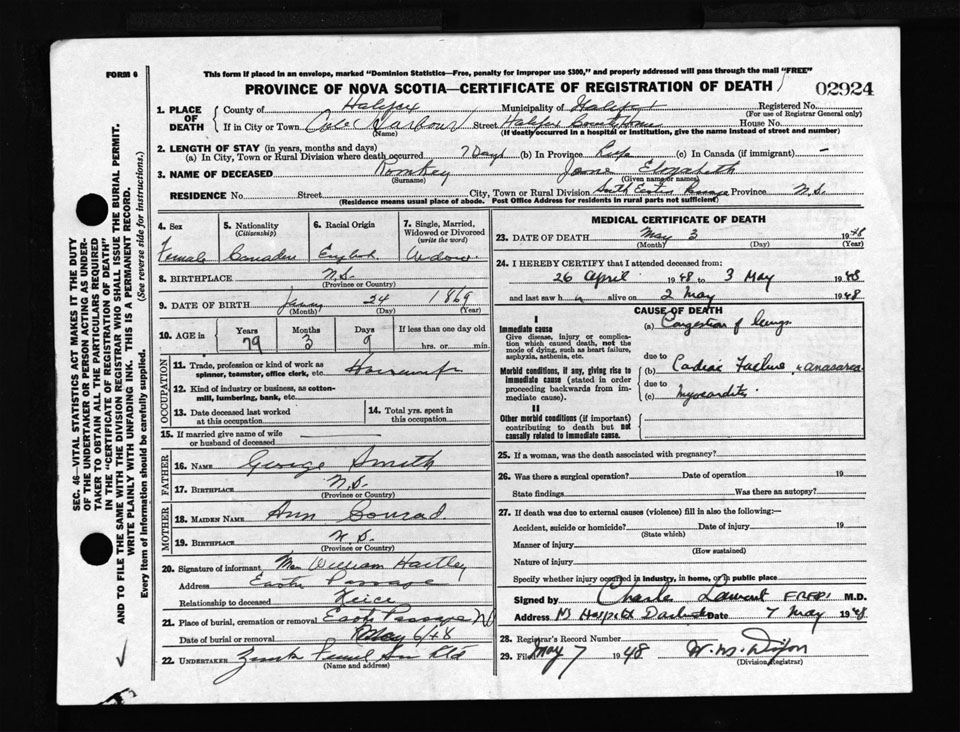 FORM 6
This form if placed in an envelope, marked "Dominion Statistics—Free, penalty for improper use $300," and properly addressed will pass through the mail "FREE"
PROVINCE OF NOVA SCOTIA—CERTIFICATE OF REGISTRATION OF DEATH
02924
1. PLACE OF DEATH
County of Halifax Municipality of Halifax Registered No.
(For use of Registrar General only)
If in City or Town Cole Harbour Street Halifax County Home House No.
(Name) (If death occurred in a hospital or institution, give the name instead of street and number)
2. LENGTH OF STAY (in years, months and days)
(a) In City, Town or Rural Division where death occurred 7 Days (b) In Province Life (c) In Canada (if immigrant) —
3. NAME OF DECEASED Romkey Elizabeth
(Surname) (Given name or names)
RESIDENCE No. Street City, Town or Rural Division South East Passage Province N.S.
(Residence means usual place of abode. Post Office Address for residents in rural parts not sufficient)
4. Sex Female
5. Nationality (Citizenship) Canadian
6. Racial Origin English
7. Single, Married, Widowed or Divorced (write the word) Widow
8. BIRTHPLACE N.S.
(Province or Country)
9. DATE OF BIRTH 24 1869
(Month) (Day) (Year)
10. AGE in Years 79 Months 3 Days 9 If less than one day old hrs. or min.
OCCUPATION
11. Trade, profession or kind of work as spinner, teamster, office clerk, etc. Housewife
12. Kind of industry or business, as cotton-mill, lumbering, bank, etc.
13. Date deceased last worked at this occupation
14. Total yrs. spent in this occupation
15. If married give name of wife or husband of deceased
FATHER
16. NAME George Smith
17. BIRTHPLACE N.S.
(Province or Country)
MOTHER
18. MAIDEN NAME Ann Conrad
19. BIRTHPLACE N.S.
(Province or Country)
20. Signature of informant Mrs William Hartley
Address Eastern Passage
Relationship to deceased Neice
21. Place of burial, cremation or removal Eastn Passage NS
Date of burial or removal May 6/48
22. UNDERTAKER Son Ltd
(Name and address)
MEDICAL CERTIFICATE OF DEATH
23. DATE OF DEATH May 3 1948
(Month) (Day) (Year)
24. I HEREBY CERTIFY that I attended deceased from:
26 April 1948 to 3 May 1948
and last saw h alive on 2 May 1948
CAUSE OF DEATH
I
Immediate cause
Give disease, injury or complication which caused death, not the mode of dying, such as heart failure, asphyxia, asthenia, etc.
(a) Congestion of lungs
due to
Morbid conditions, if any, giving rise to immediate cause (stated in order proceeding backwards from immediate cause).
(b) Cardiac Failure & anasarca
due to
(c) Myocarditis
II
Other morbid conditions (if important) contributing to death but not causally related to immediate cause.
25. If a woman, was the death associated with pregnancy?
26. Was there a surgical operation? Date of operation 19
State findings Was there an autopsy?
27. If death was due to external causes (violence) fill in also the following:—
Accident, suicide or homicide? Date of injury 19
(State which)
Manner of injury
(How sustained)
Nature of injury
Specify whether injury occurred in industry, in home, or in public place
Signed by Charles M.D.
Address NS Hospital Dartmouth Date 7 May 1948
28. Registrar's Record Number
29. Filed May 7 1948 W. M. Dixon
(Division Registrar)
SEC. 46—VITAL STATISTICS ACT MAKES IT THE DUTY
OF THE UNDERTAKER OR PERSON ACTING AS UNDER-
TAKER TO OBTAIN ALL THE PARTICULARS REQUIRED
IN THE "CERTIFICATE OF REGISTRATION OF DEATH"
AND TO FILE THE SAME WITH THE DIVISION REGISTRAR WHO SHALL ISSUE THE BURIAL PERMIT.
WRITE PLAINLY WITH UNFADING INK. THIS IS A PERMANENT RECORD.
Every item of information should be carefully supplied. (See reverse side for instructions.)